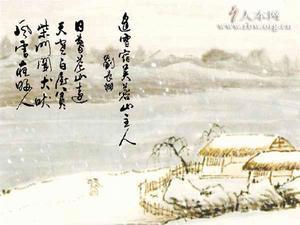 人本网
www.rbw.org.cn
逢雪宿芙蓉山主人
劉長卿
日暮苍山遠
天寒白屋貧
柴門聞犬吠
風雪夜歸人